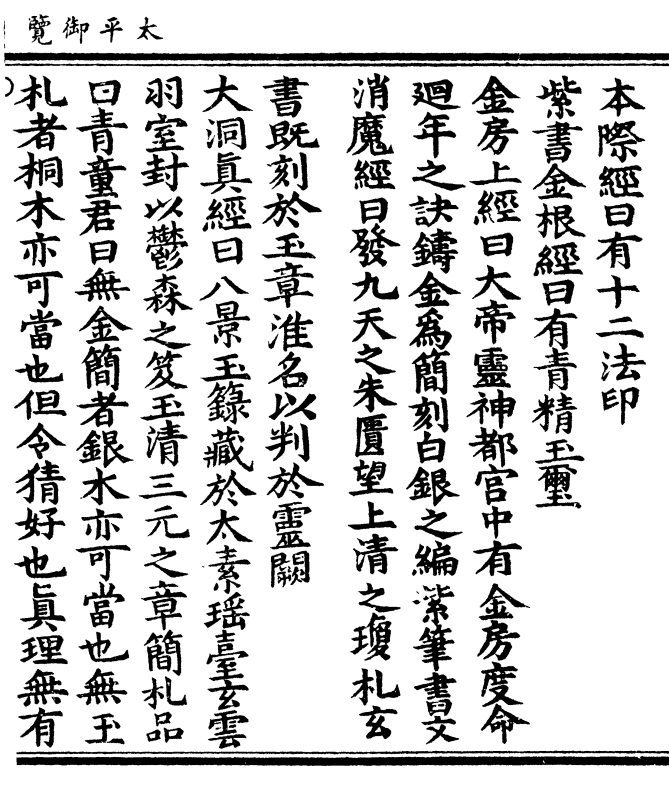 太平御覽
本際經曰有十二法印
紫書金根經曰有青精玉璽
金房上經曰大帝靈神都宮中有金房度命
廻年之訣鑄金爲簡刻白銀之編紫筆書文
消魔經曰發九天之朱匱望上清之瓊札玄
書既刻於玉章淮名以判於靈闕
大洞眞經曰八景玉籙藏於太素瑶臺玄雲
羽室封以鬱森之笈玉清三元之章簡札品
曰青童君曰無金簡者銀水亦可當也無玉
札者桐木亦可當也但令猜好也眞理無有